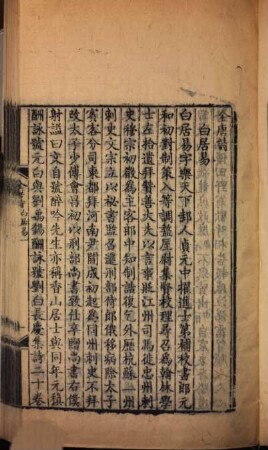 全唐詩
白居易
白居易字樂天下邽人貞元中擢進士第補校書郎元
和初對制策入等調盩厔尉集賢校理尋召為翰林學
士左拾遺拜贊善大夫以言事貶江州司馬徙忠州刺
史穆宗初徵為主客郎中知制誥復乞外歷杭蘇二州
刺史文宗立以祕書監召遷刑部侍郎俄移病除太子
賓客分司東都拜河南尹開成初起為同州刺史不拜
改太子少傅會昌初以刑部尚書致仕卒贈尚書右僕
射諡曰文自號醉吟先生亦稱香山居士與同年元稹
酬詠號元白與劉禹錫酬詠號劉白長慶集詩二十卷